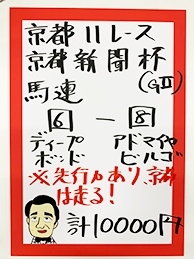 京都11レース
京都新聞杯
(GⅡ)
馬連
6 － 8
ディープ アドマイヤ
ボンド ビルゴ
※先行力あり、京都
は走る!
計10000円